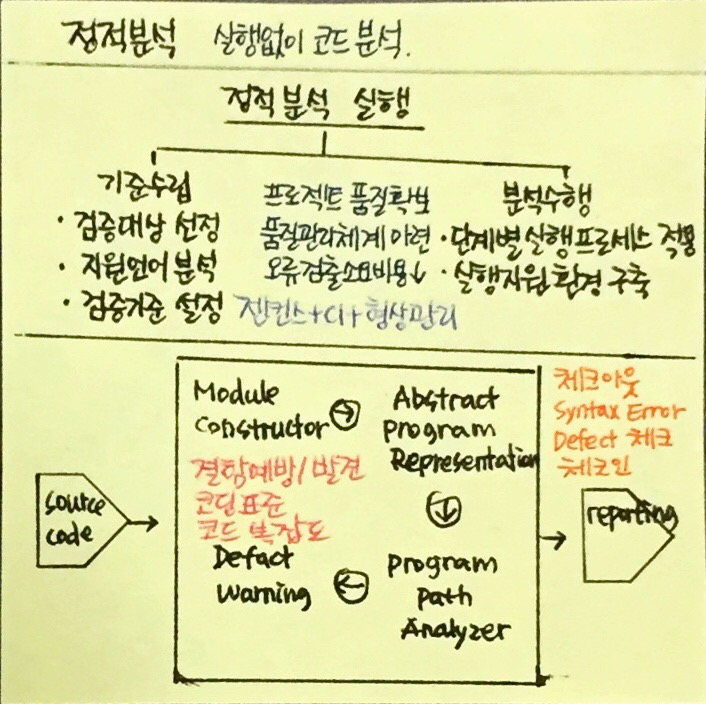 정적분석 실행없이 코드 분석.
정적분석 실행
기준수립
· 검증대상 선정
· 지원언어 분석
· 검증기준 설정
프로젝트 품질확보
품질관리체계 마련
오류검출소요비용↓
젠킨스+CI+형상관리
분석수행
· 단계별 실행프로세스 적용
· 실행지원 환경 구축
source
code
Module
Constructor
Abstract
program
Representation
결함예방/발견
코딩표준
코드 복잡도
Defact
Warning
program
path
Analyzer
체크아웃
Syntax Error
Defect 체크
체크인
reporting